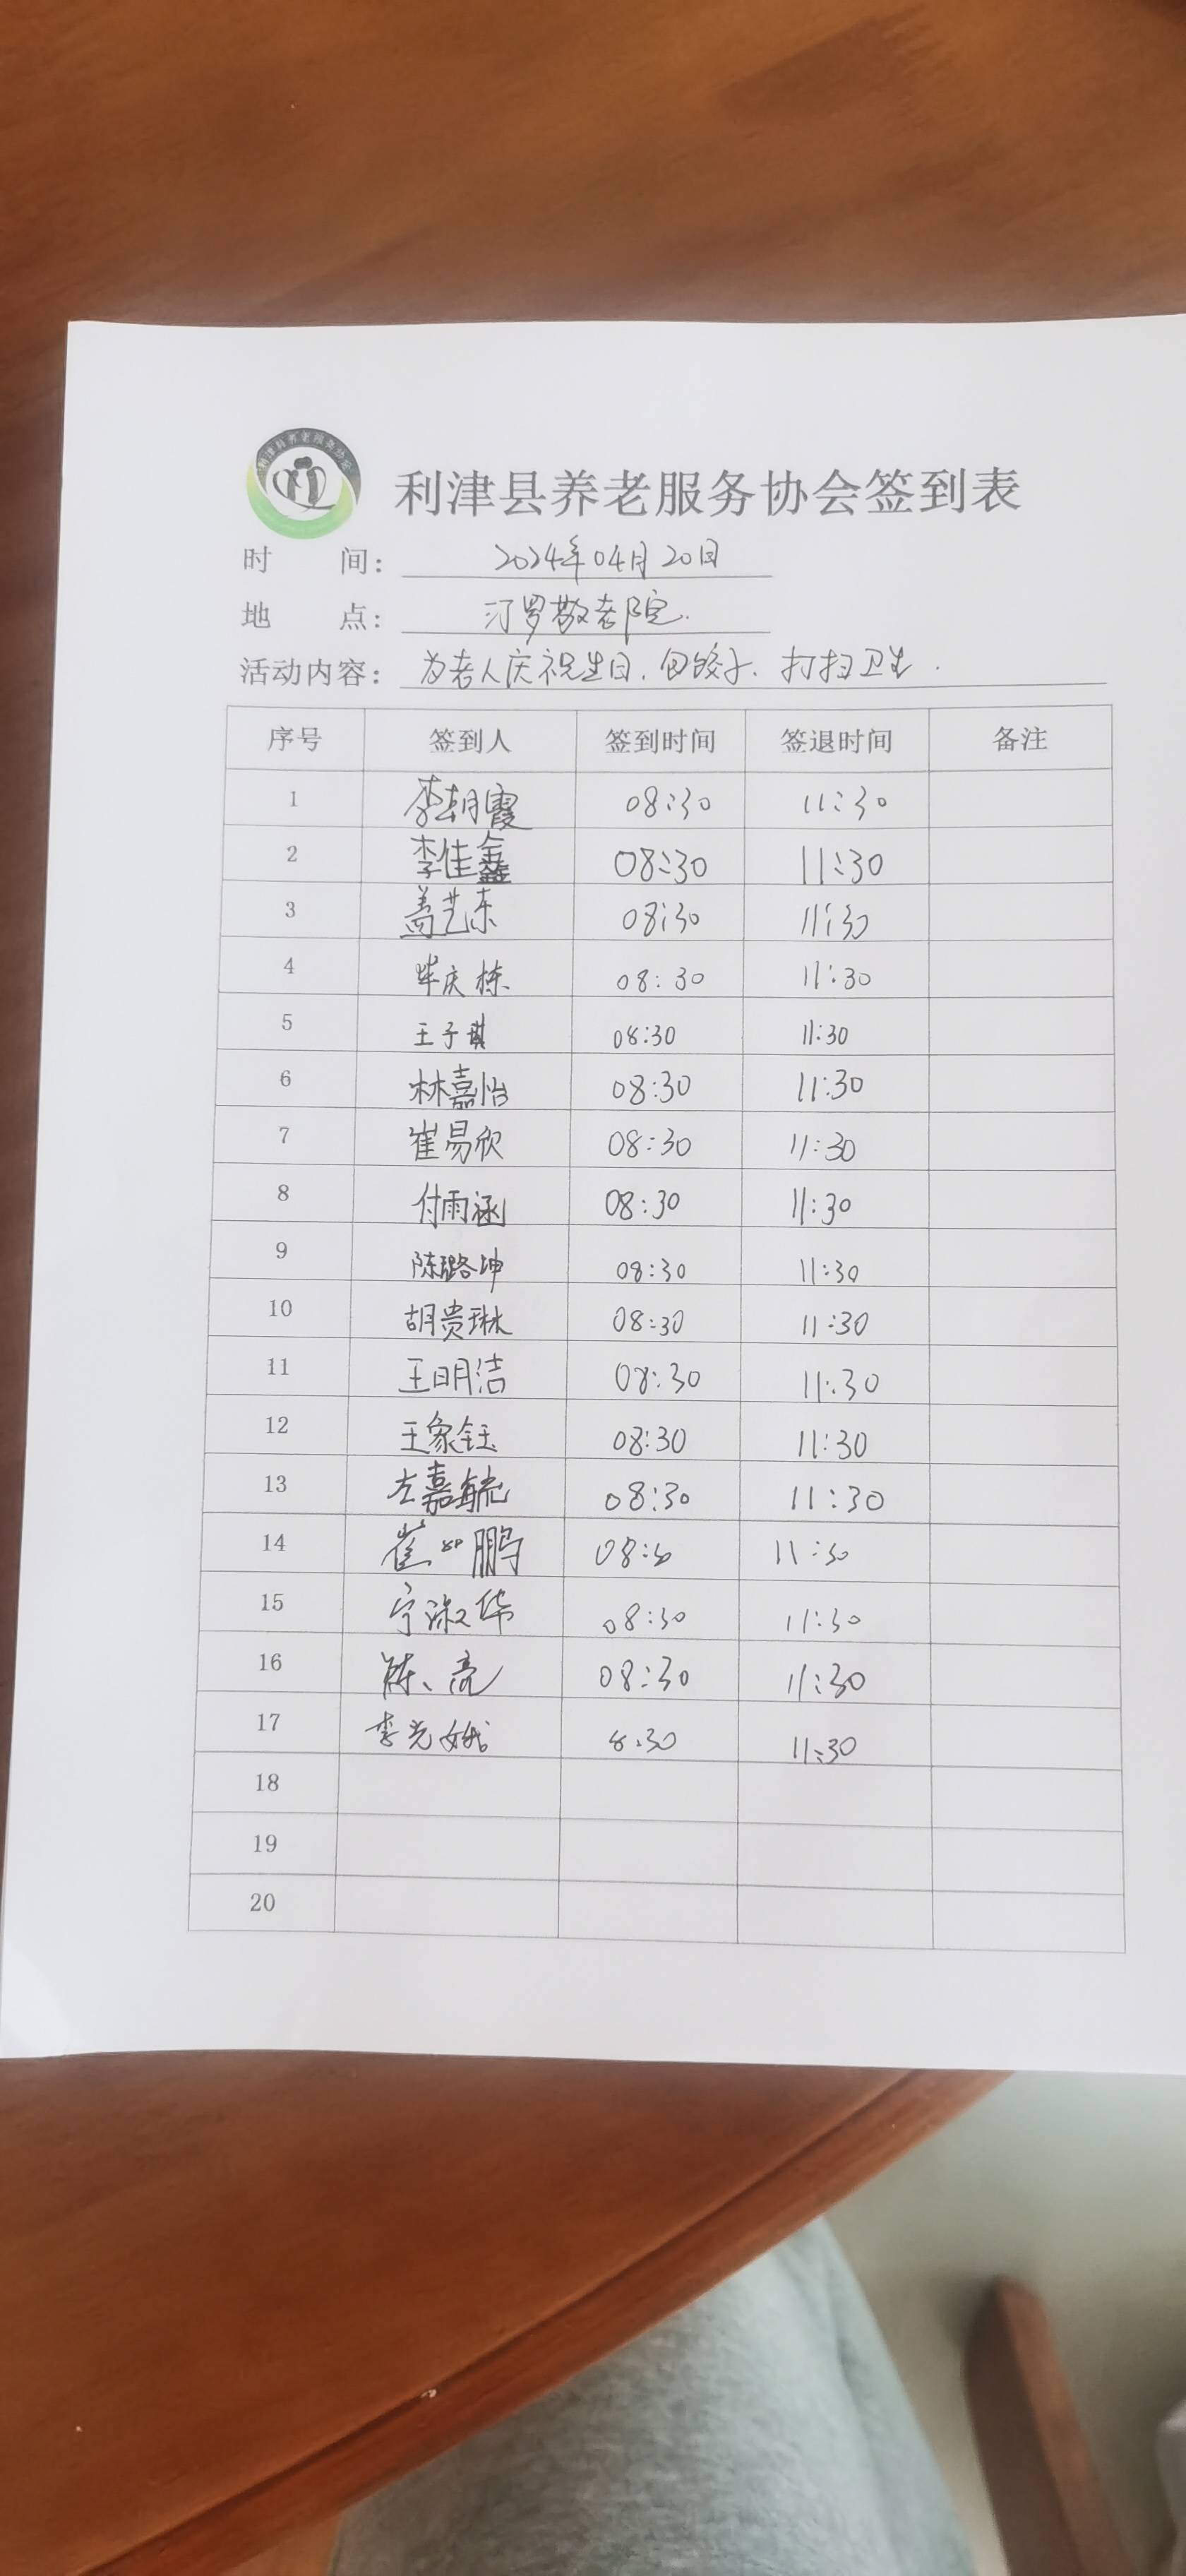 利津县养老服务协会
利津县养老服务协会签到表
时 间: 2024年04月20日
地 点: 汀罗敬老院.
活动内容: 为老人庆祝生日,包饺子、打扫卫生.
序号 签到人 签到时间 签退时间 备注
1 李朝霞 08:30 11:30
2 李佳鑫 08:30 11:30
3 盖艺东 08:30 11:30
4 毕庆栋 08:30 11:30
5 王子琪 08:30 11:30
6 林嘉怡 08:30 11:30
7 崔易欣 08:30 11:30
8 付雨涵 08:30 11:30
9 陈璐坤 08:30 11:30
10 胡贵琳 08:30 11:30
11 王明洁 08:30 11:30
12 王家钰 08:30 11:30
13 左嘉毓 08:30 11:30
14 崔 鹏 08:30 11:30
15 宁淑华 08:30 11:30
16 陈亮 08:30 11:30
17 李光娥 8:30 11:30
18
19
20